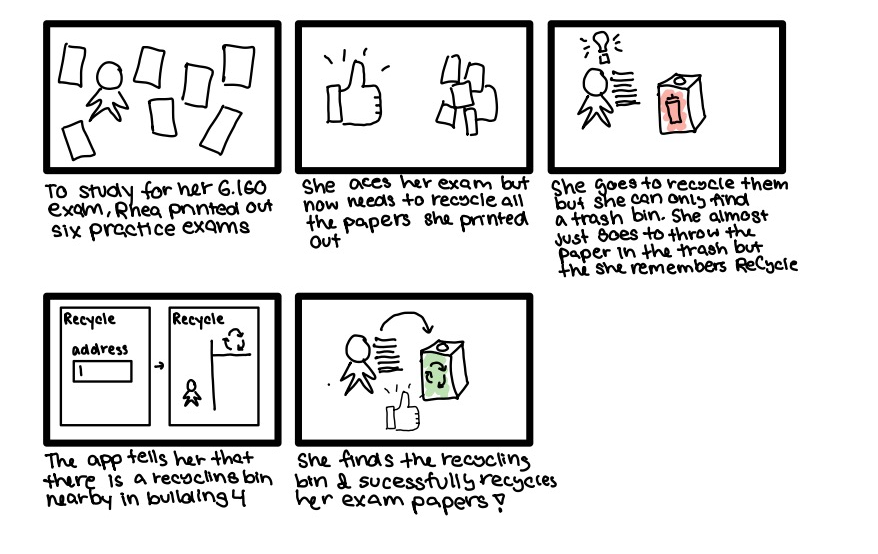 To study for her 6.160
exam, Rhea printed out
six practice exams
She aces her exam but
now needs to recycle all
the papers she printed
out
She goes to recycle them
but she can only find
a trash bin. She almost
just goes to throw the
paper in the trash but
the she remembers ReCycle
Recycle
address
Recycle
The app tells her that
there is a recycling bin
nearby in building 4
She finds the recycling
bin & sucessfully recycles
her exam papers!